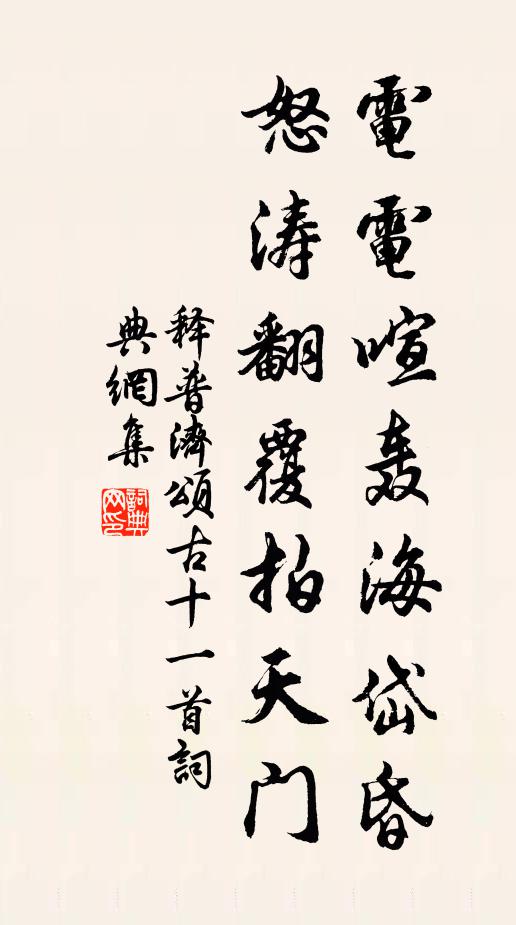 電電喧轰海岱昏
怒涛翻覆拍天门
释普濟頌古十一首詞
典網集
詞典
网印